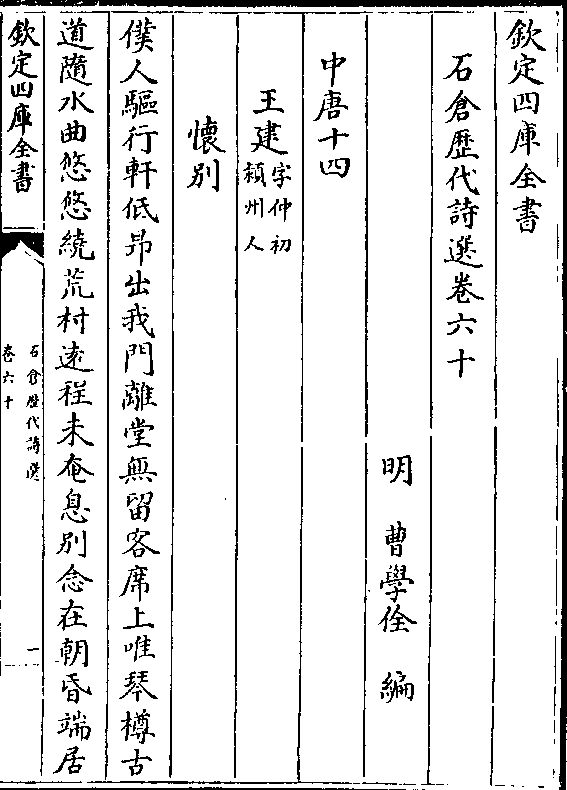 欽定四庫全書
石倉歴代詩選卷六十
明 曹學佺 編
中唐十四
王建字仲初
頴州人
懷别
僕人驅行軒低昻出我門離堂無留客席上唯琴樽古
道隨水曲悠悠繞荒村逺程未奄息别念在朝昏端居
欽定四庫全書
石倉歴代詩選
卷六十
一